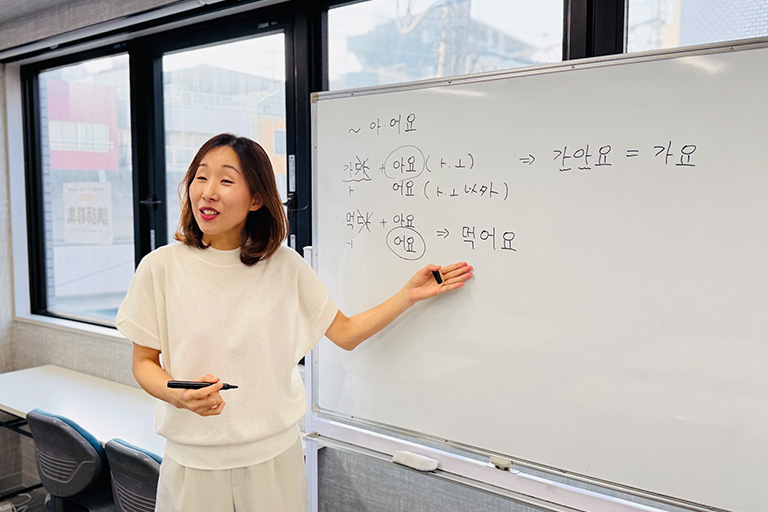 ~ 아 어요
가다 + 아요 (ㅏ.ㅗ) ⇒ 간아요 = 가요
ㅏ 어요 (ㅏ.ㅗ
먹다 + 아요
ㅓ 어요 ⇒ 떡어요